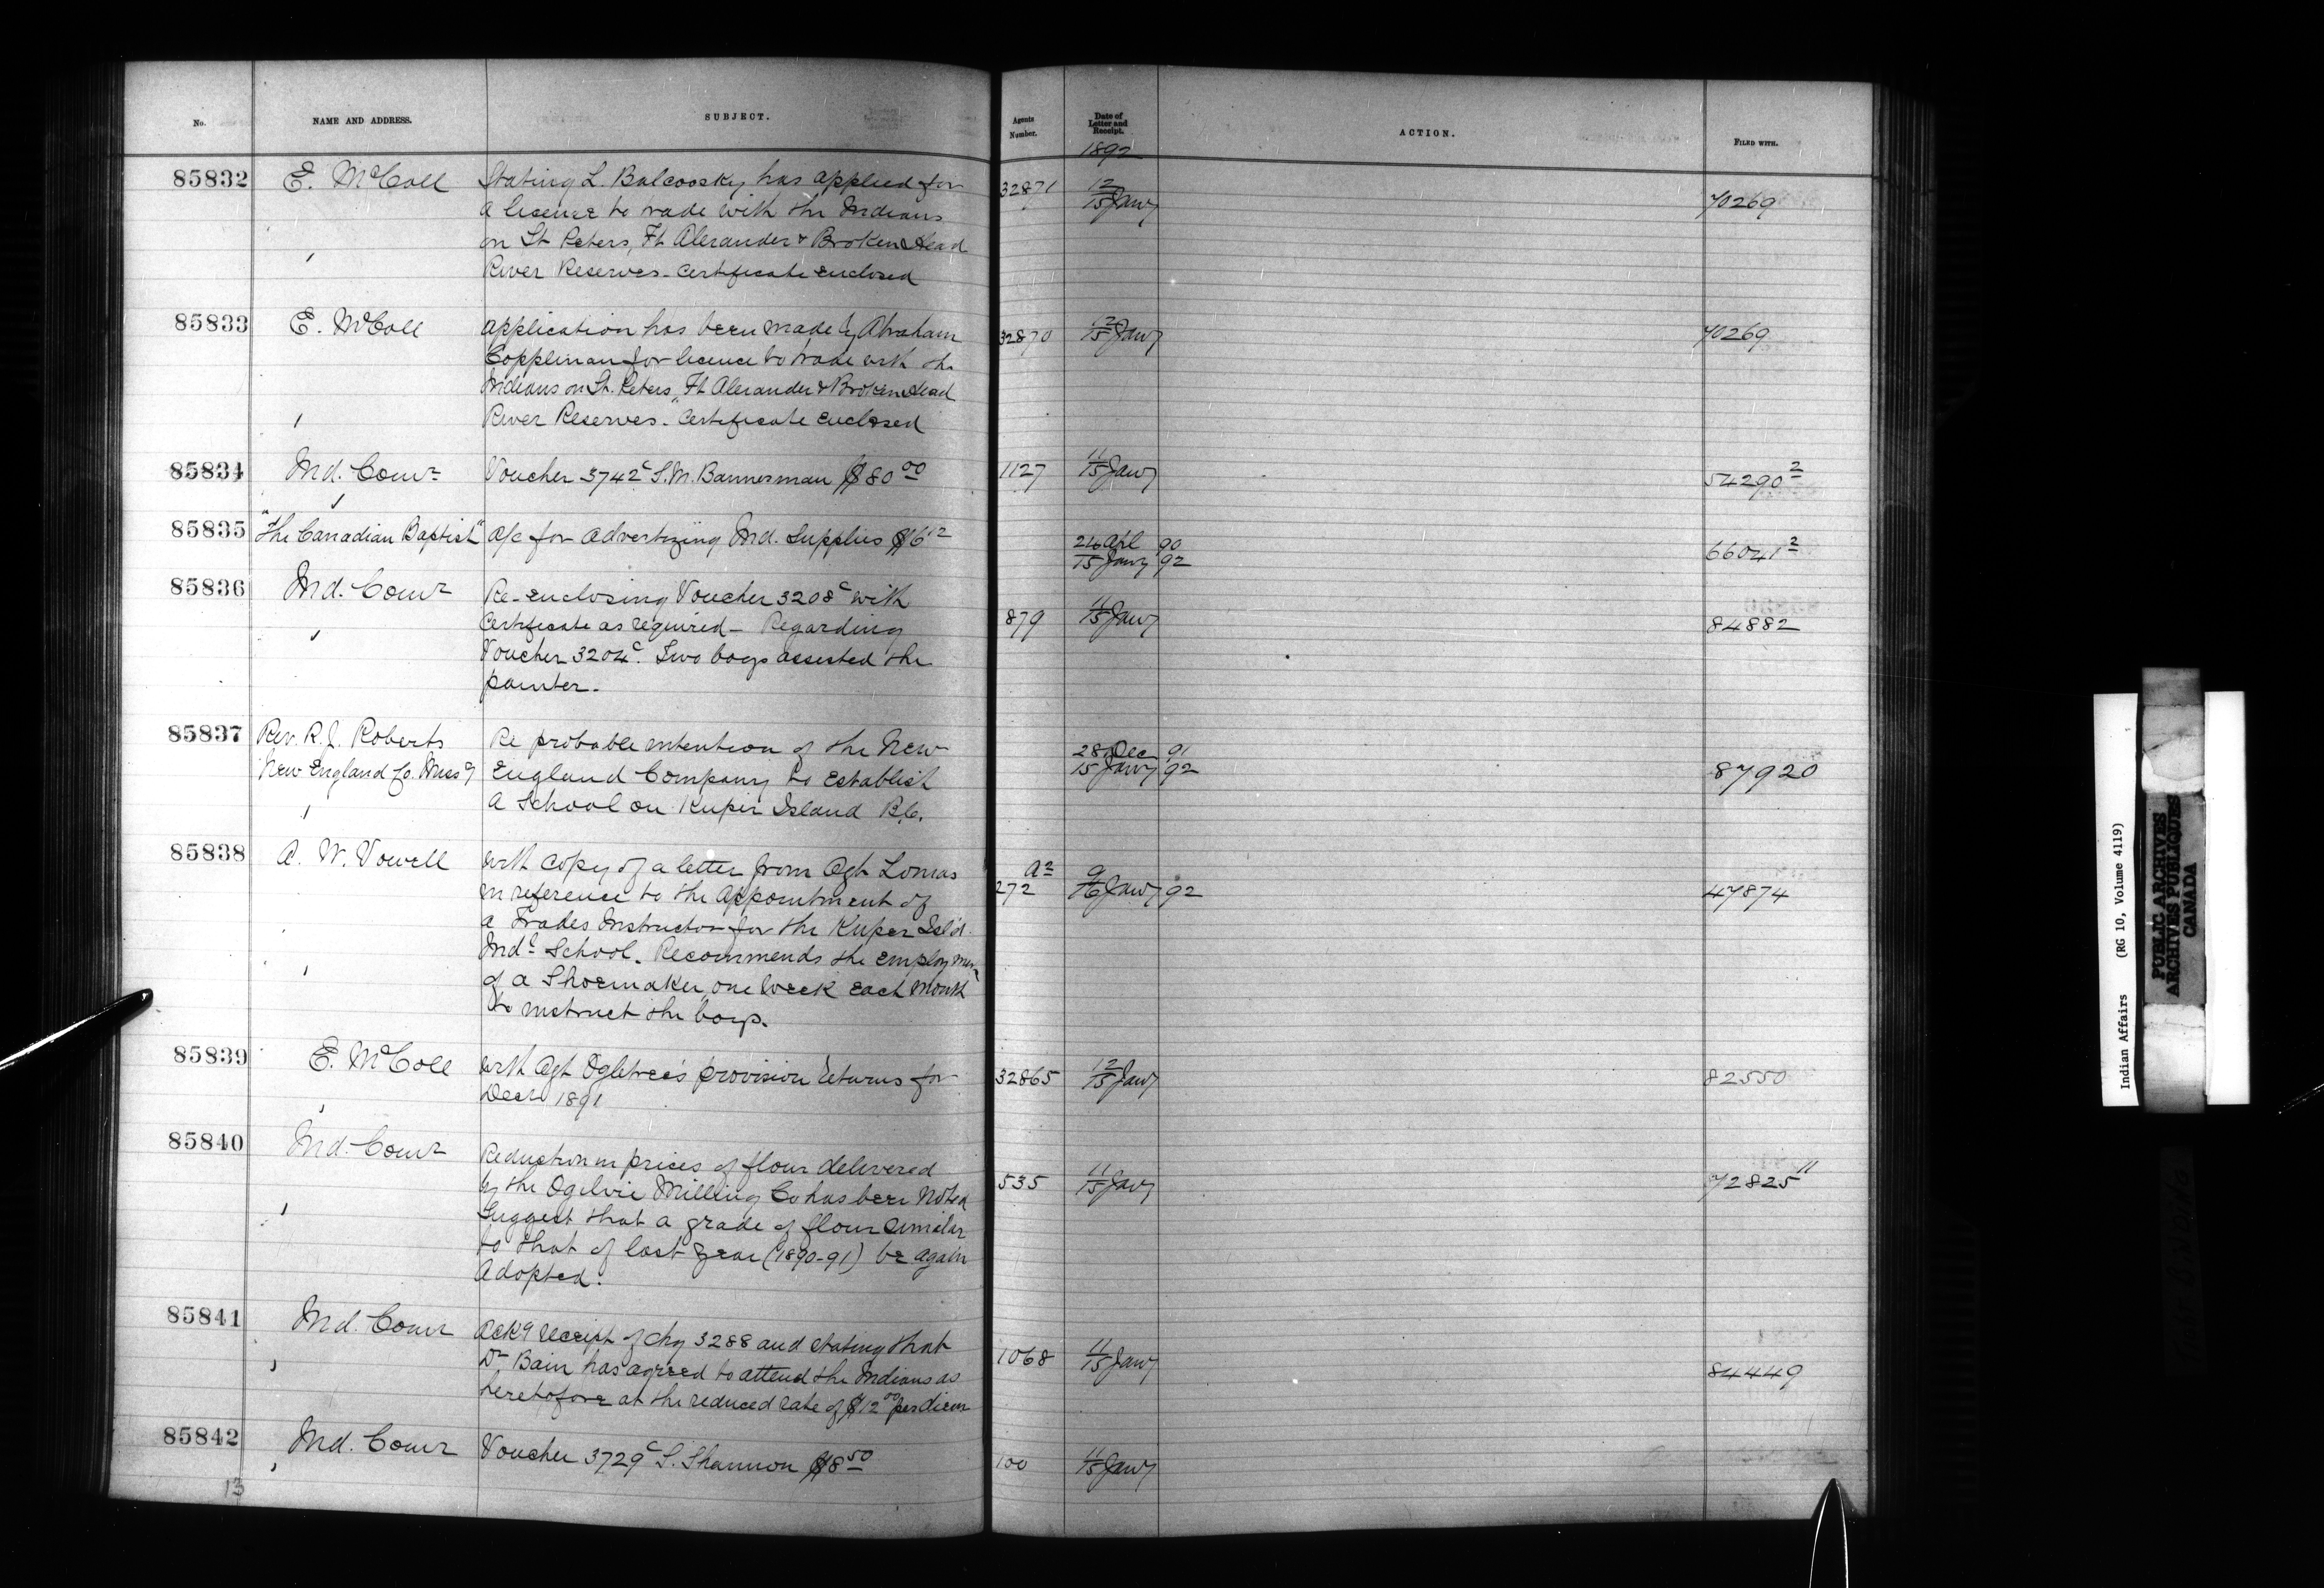 No. NAME AND ADDRESS. SUBJECT. Agents Number. Date of Letter and Receipt. ACTION. FILED WITH.
1892
85832 E. McColl Stating L. Balcoosky has applied for 32871 12/15 Jany 70269
a licence to trade with the Indians
on St Peters, Ft Alexander & Broken Head
River Reserves - Certificate enclosed
85833 E. McColl Application has been made by Abraham 32870 12/15 Jany 70269
Coppleman for licence to trade with the
Indians on St. Peters, Ft Alexander & Broken Head
River Reserves - Certificate enclosed
85834 Ind. Comr Voucher 3742c S. M. Bannerman $80 00 1127 11/15 Jany 54290 2
85835 "The Canadian Baptist" a/c for advertizing Ind. Supplies $6 12 66041 2
24 Apl 90
15 Jany 92
85836 Ind. Comr Re-enclosing Voucher 3208c with
Certificate as required - Regarding 879 11/15 Jany 84882
Voucher 3204c. Two boys assisted the
painter.
85837 Rev. R. J. Roberts Re probable intention of the New 28 Dec 91
New England Co. Missy England Company to establish 15 Jany 92 87920
a School on Kuper Island B.C.
85838 A. W. Vowell with copy of a letter from Agt Lomas
in reference to the appointment of 272 9/16 Jany 92 47874
a Trades Instructor for the Kuper Isl'd
Indl School. Recommends the employmen
of a Shoemaker one week each month
to instruct the boys.
85839 E. McColl with Agt Ogletree's provision returns for 32865 12/15 Jany 82550
Decr 1891
85840 Ind. Comr Reduction in prices of flour delivered
by the Ogilvie Milling Co has been noted 535 11/15 Jany 72825 11
Suggest that a grade of flour similar
to that of last year (1890-91) be again
adopted.
85841 Ind. Comr Ackg receipt of chq 3288 and stating that
Dr Bain has agreed to attend the Indians as 1068 11/15 Jany 84449
heretofore at the reduced rate of $12 00 per diem
85842 Ind. Comr Voucher 3729c S. Shannon $8 50 100 11/15 Jany
13
Indian Affairs (RG 10, Volume 4119)
PUBLIC ARCHIVES
ARCHIVES PUBLIQUES
CANADA